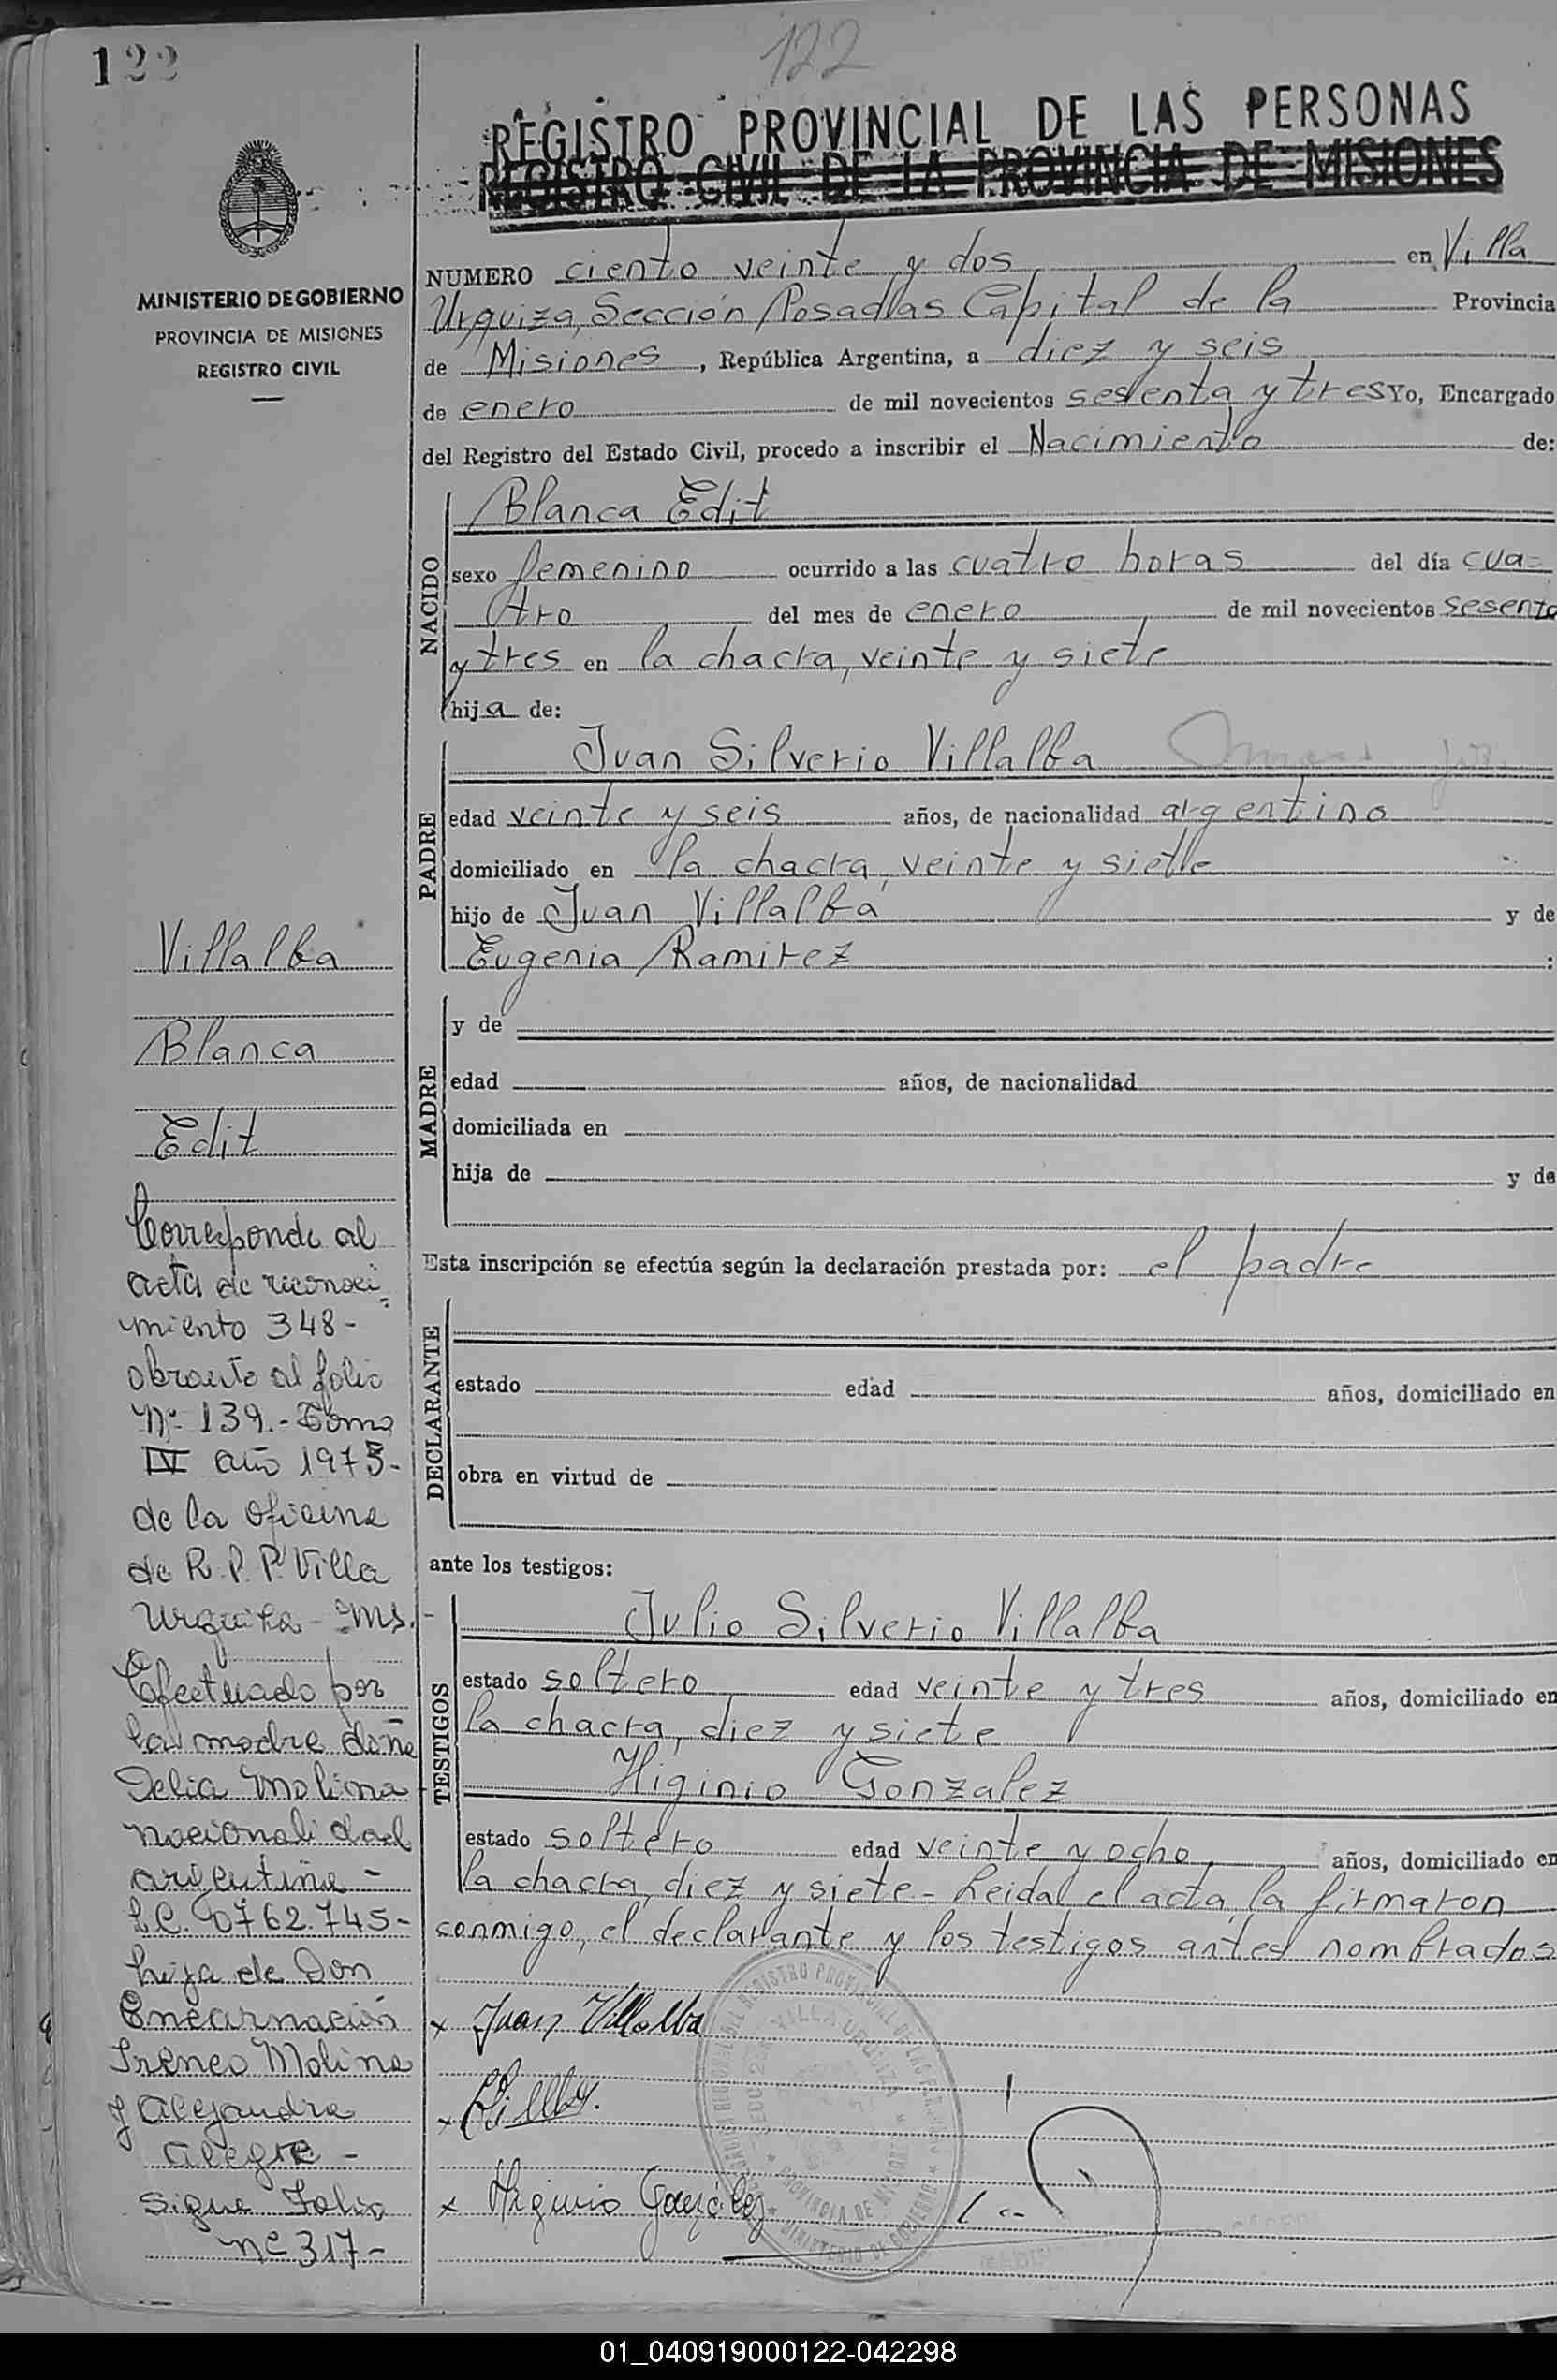 122
122
REGISTRO PROVINCIAL DE LAS PERSONAS
REGISTRO CIVIL DE LA PROVINCIA DE MISIONES
MINISTERIO DE GOBIERNO
PROVINCIA DE MISIONES
REGISTRO CIVIL
NUMERO ciento veinte y dos en Villa
Urquiza, Sección Posadas Capital de la Provincia
de Misiones, República Argentina, a diez y seis
de enero de mil novecientos sesenta y tres Yo, Encargado
del Registro del Estado Civil, procedo a inscribir el Nacimiento de:
NACIDO
Blanca Edit
sexo femenino ocurrido a las cuatro horas del día cua-
tro del mes de enero de mil novecientos sesenta
y tres en la chacra, veinte y siete
hija de:
PADRE
Juan Silverio Villalba
edad veinte y seis años, de nacionalidad argentino
domiciliado en la chacra, veinte y siete
hijo de Juan Villalba y de
Eugenia Ramirez :
MADRE
y de
edad años, de nacionalidad
domiciliada en
hija de y de
Esta inscripción se efectúa según la declaración prestada por: el padre
DECLARANTE
estado edad años, domiciliado en
obra en virtud de
ante los testigos:
TESTIGOS
Julio Silverio Villalba
estado soltero edad veinte y tres años, domiciliado en
la chacra, diez y siete
Higinio Gonzalez
estado soltero edad veinte y ocho, años, domiciliado en
la chacra, diez y siete - Leida el acta, la firmaron
conmigo, el declarante y los testigos antes nombrados
x Juan Villalba
x
x Higinio González
Villalba
Blanca
Edit
Corresponde al
acta de reconoci-
miento 348-
obrante al folio
Nº 139.- Tomo
IV año 1975-
de la oficina
de R.P.P. Villa
Urquiza - Ms.-
Efectuado por
la madre doña
Delia Molina
nacionalidad
argentina -
L.C. 0762.745-
hija de Don
Encarnación
Ireneo Molina
y Alejandra
Alegre -
Sigue Folio
nº 317-
01_040919000122-042298